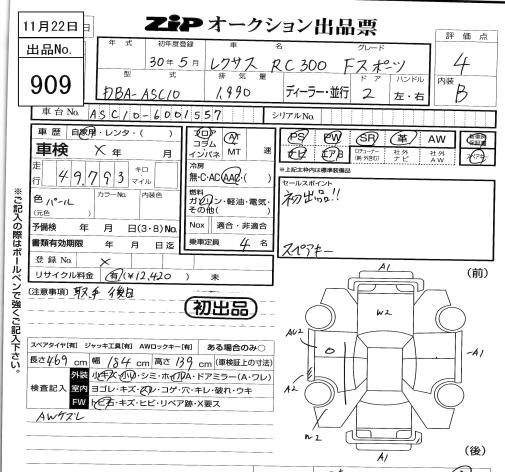 11月22日
ZiP オークション出品票
出品No.
909
年式 初年度登録 車名 グレード
30年5月 レクサス RC300 Fスポーツ
型式 排気量 ドア ハンドル
DBA-ASC10 1,990 ディーラー・並行 2 左・右
評価点
4
内装
B
車台No. ASC10-6001557 シリアルNo.
車歴 自家用・レンタ・( )
車検 × 年 月
走行 49,793 キロ マイル
色 パール カラーNo. 内装色
(元色 )
予備検 年 月 日(3・8)No.
書類有効期限 年 月 日迄
登録No. ×
リサイクル料金 (有)(¥12,420 )未
フロア コラム インパネ
AT MT 速
冷房
無・C・AC・AAC・( )
燃料
ガソリン・軽油・電気・その他( )
Nox 適合・非適合
乗車定員 4 名
PS PW SR 革 AW
ナビ エアB 社外ナビ 社外AW
※上記太枠内は標準装備品
セールスポイント
初出品!!
スペアキー
(注意事項)
取手後日
初出品
スペアタイヤ[有] ジャッキ工具[有] AWロックキー[有] ある場合のみ○
長さ469cm 幅184cm 高さ139cm (車検証上の寸法)
検査記入
外装 小キズ・小凹・シミ・ホイルA・ドアミラー(A・ワレ)
室内 ヨゴレ・キズ・スレ・コゲ・穴・キレ・破れ・ウキ
FW トビ石・キズ・ヒビ・リペア跡・X要ス
AWケズレ
※ご記入の際はボールペンで強くご記入下さい。
A1
(前)
W2
AW2
A1
A2
W2
A1
(後)